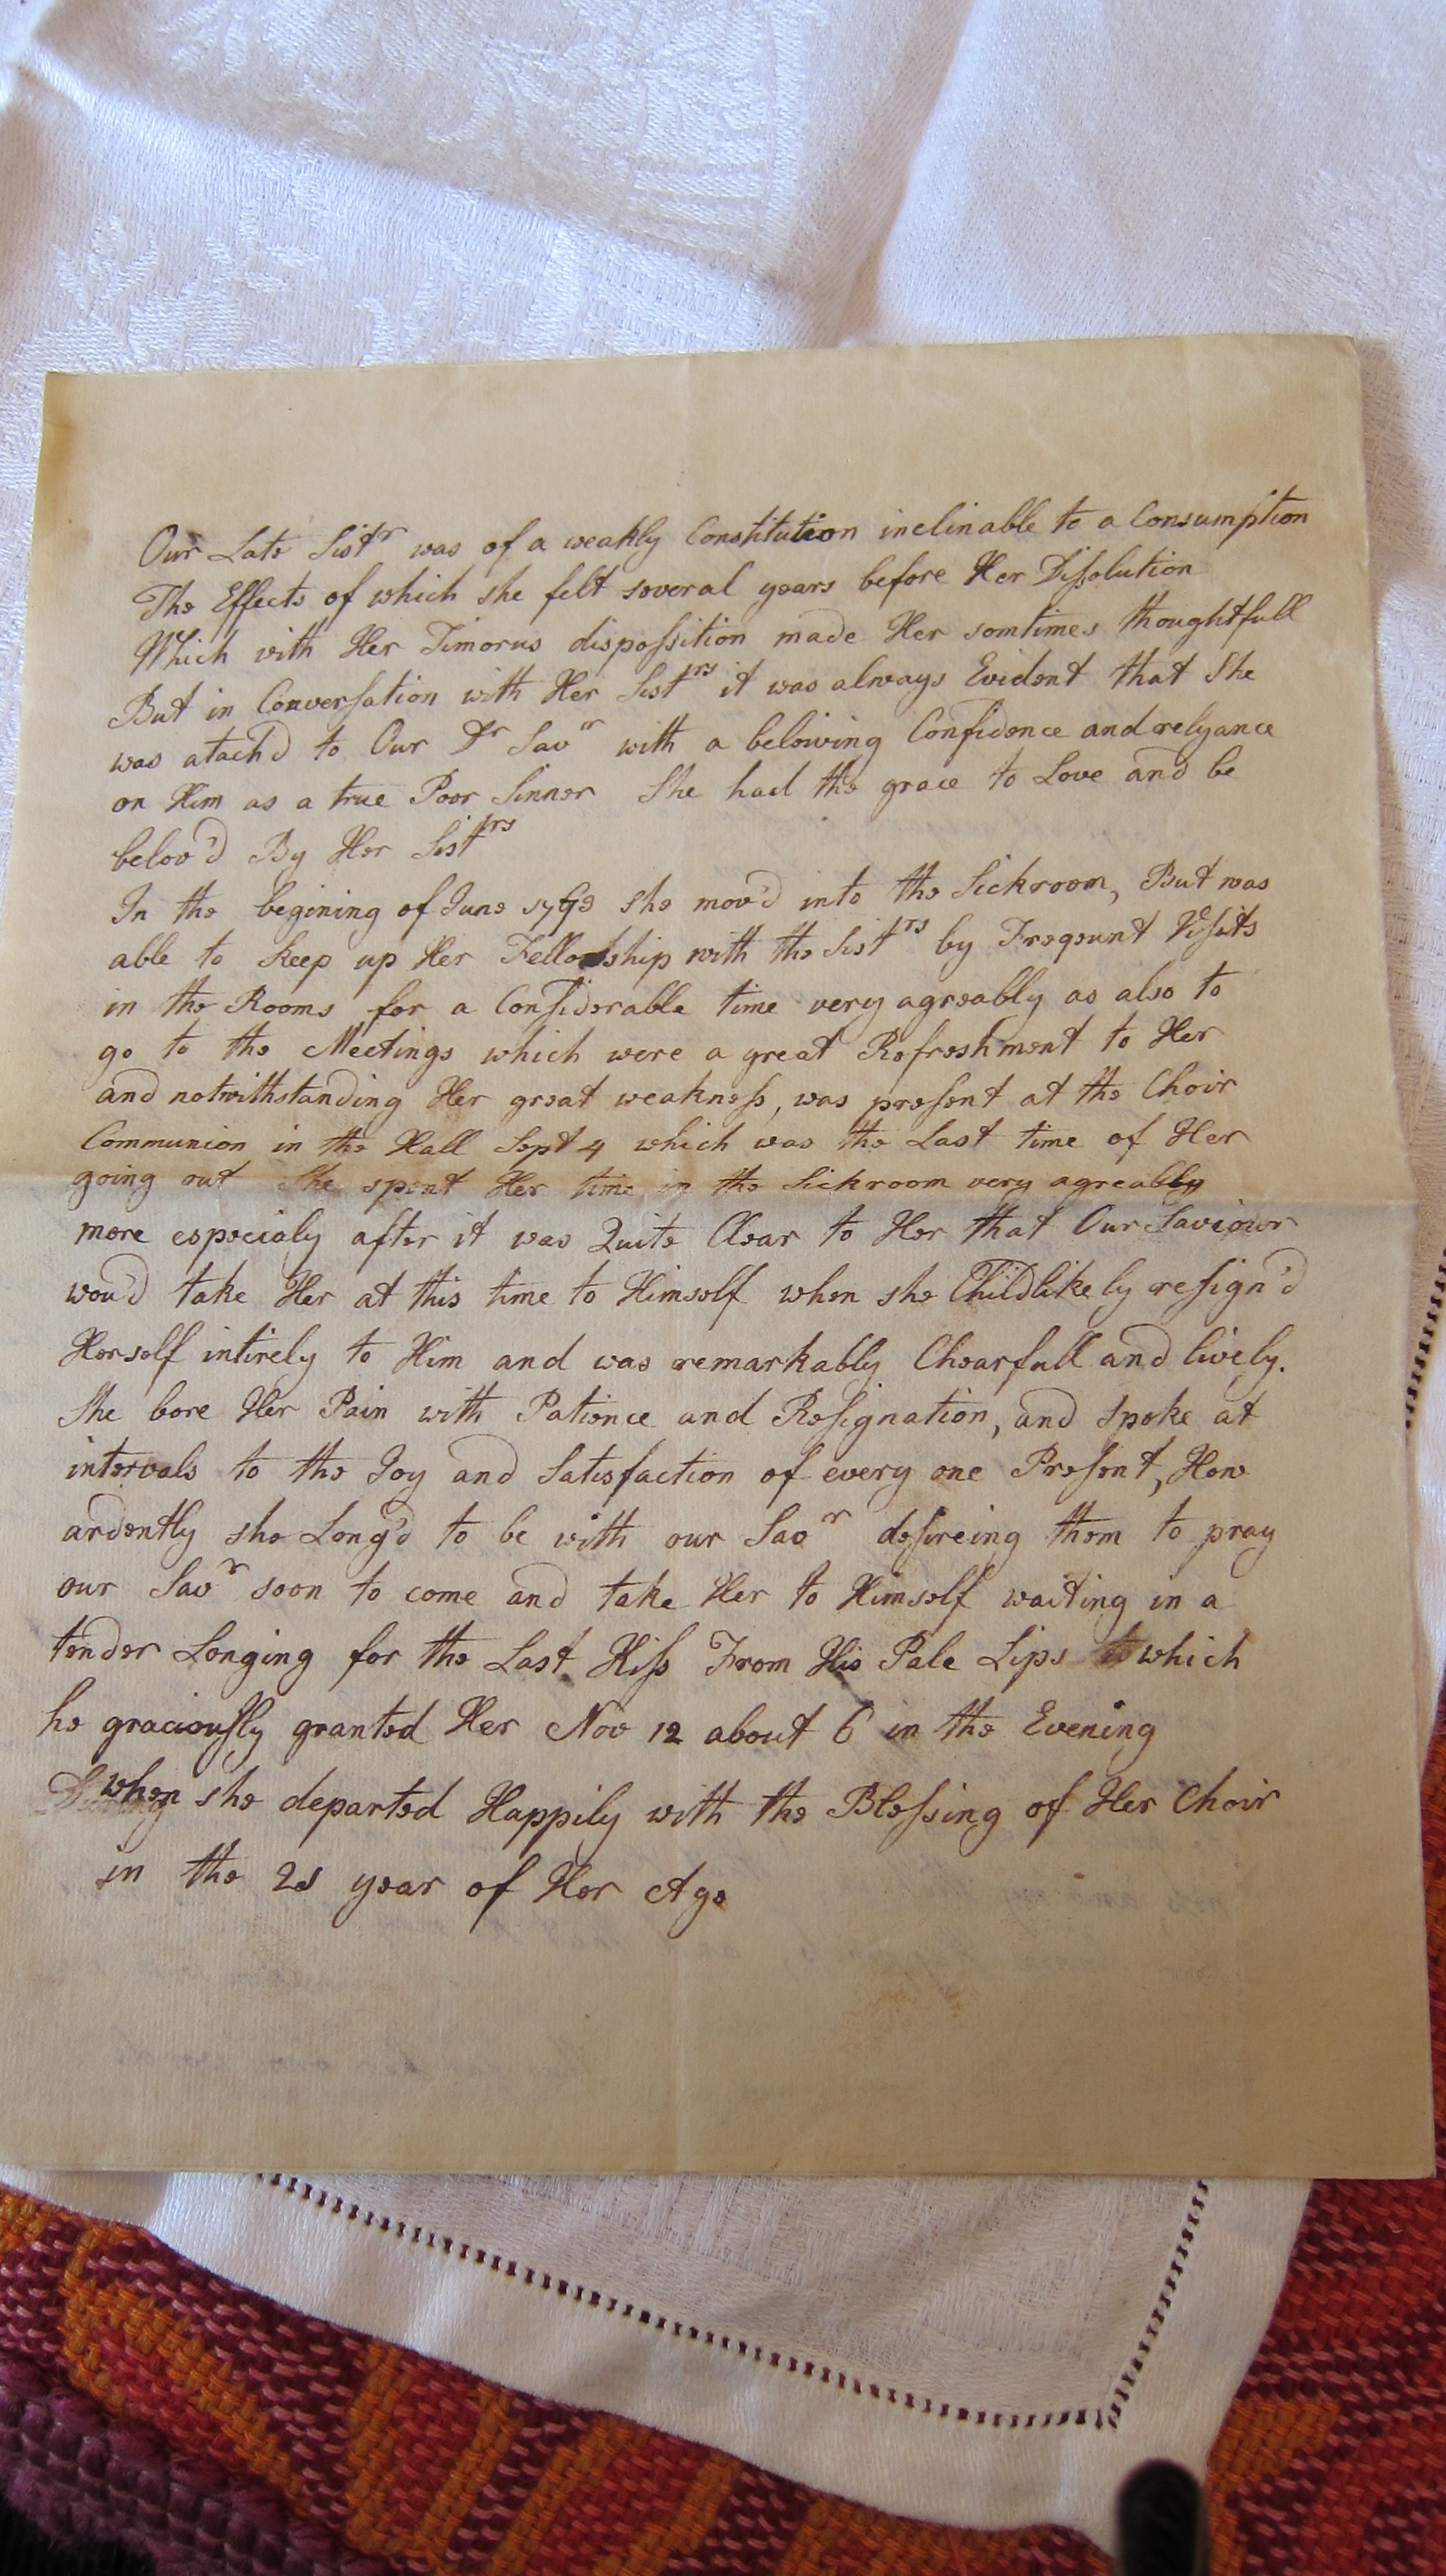 Our Late Sistr was of a weakly Constitution inclinable to a Consumption
The Effects of which she felt several years before Her Dissolution
Which with Her Timorus dispossition made Her somtimes thoughtfull
But in Conversation with Her Sistrs it was always Evident that She
was atach'd to Our Dr Savr with a beleiving Confidence and relyance
on Him as a true Poor Sinner She had the grace to Love and be
belov'd By Her Sistrs
In the begining of June 1793 she mov'd into the Sickroom, But was
able to keep up Her Fellowship with the Sistrs by Freqeunt Visits
in the Rooms for a Considerable time very agreably as also to
go to the Meetings which were a great Refreshment to Her
and notwithstanding Her great weakness, was present at the Choir
Communion in the Hall Sept 4 which was the Last time of Her
going out She spent Her time in the Sickroom very agreably
more especialy after it was Quite Clear to Her that Our Saviour
wou'd take Her at this time to Himself when she Childlikely resign'd
Herself intirely to Him and was remarkably Chearfull and lively.
She bore Her Pain with Patience and Resignation, and spoke at
intervals to the Joy and Satisfaction of every one Present, How
ardently she Long'd to be with our Savr desireing them to pray
our Savr soon to come and take Her to Himself waiting in a
tender Longing for the Last Kiss From His Pale Lips which
he graciously granted Her Nov 12 about 6 in the Evening
when she departed Happily with the Blessing of Her Choir
in the 21 year of Her Age